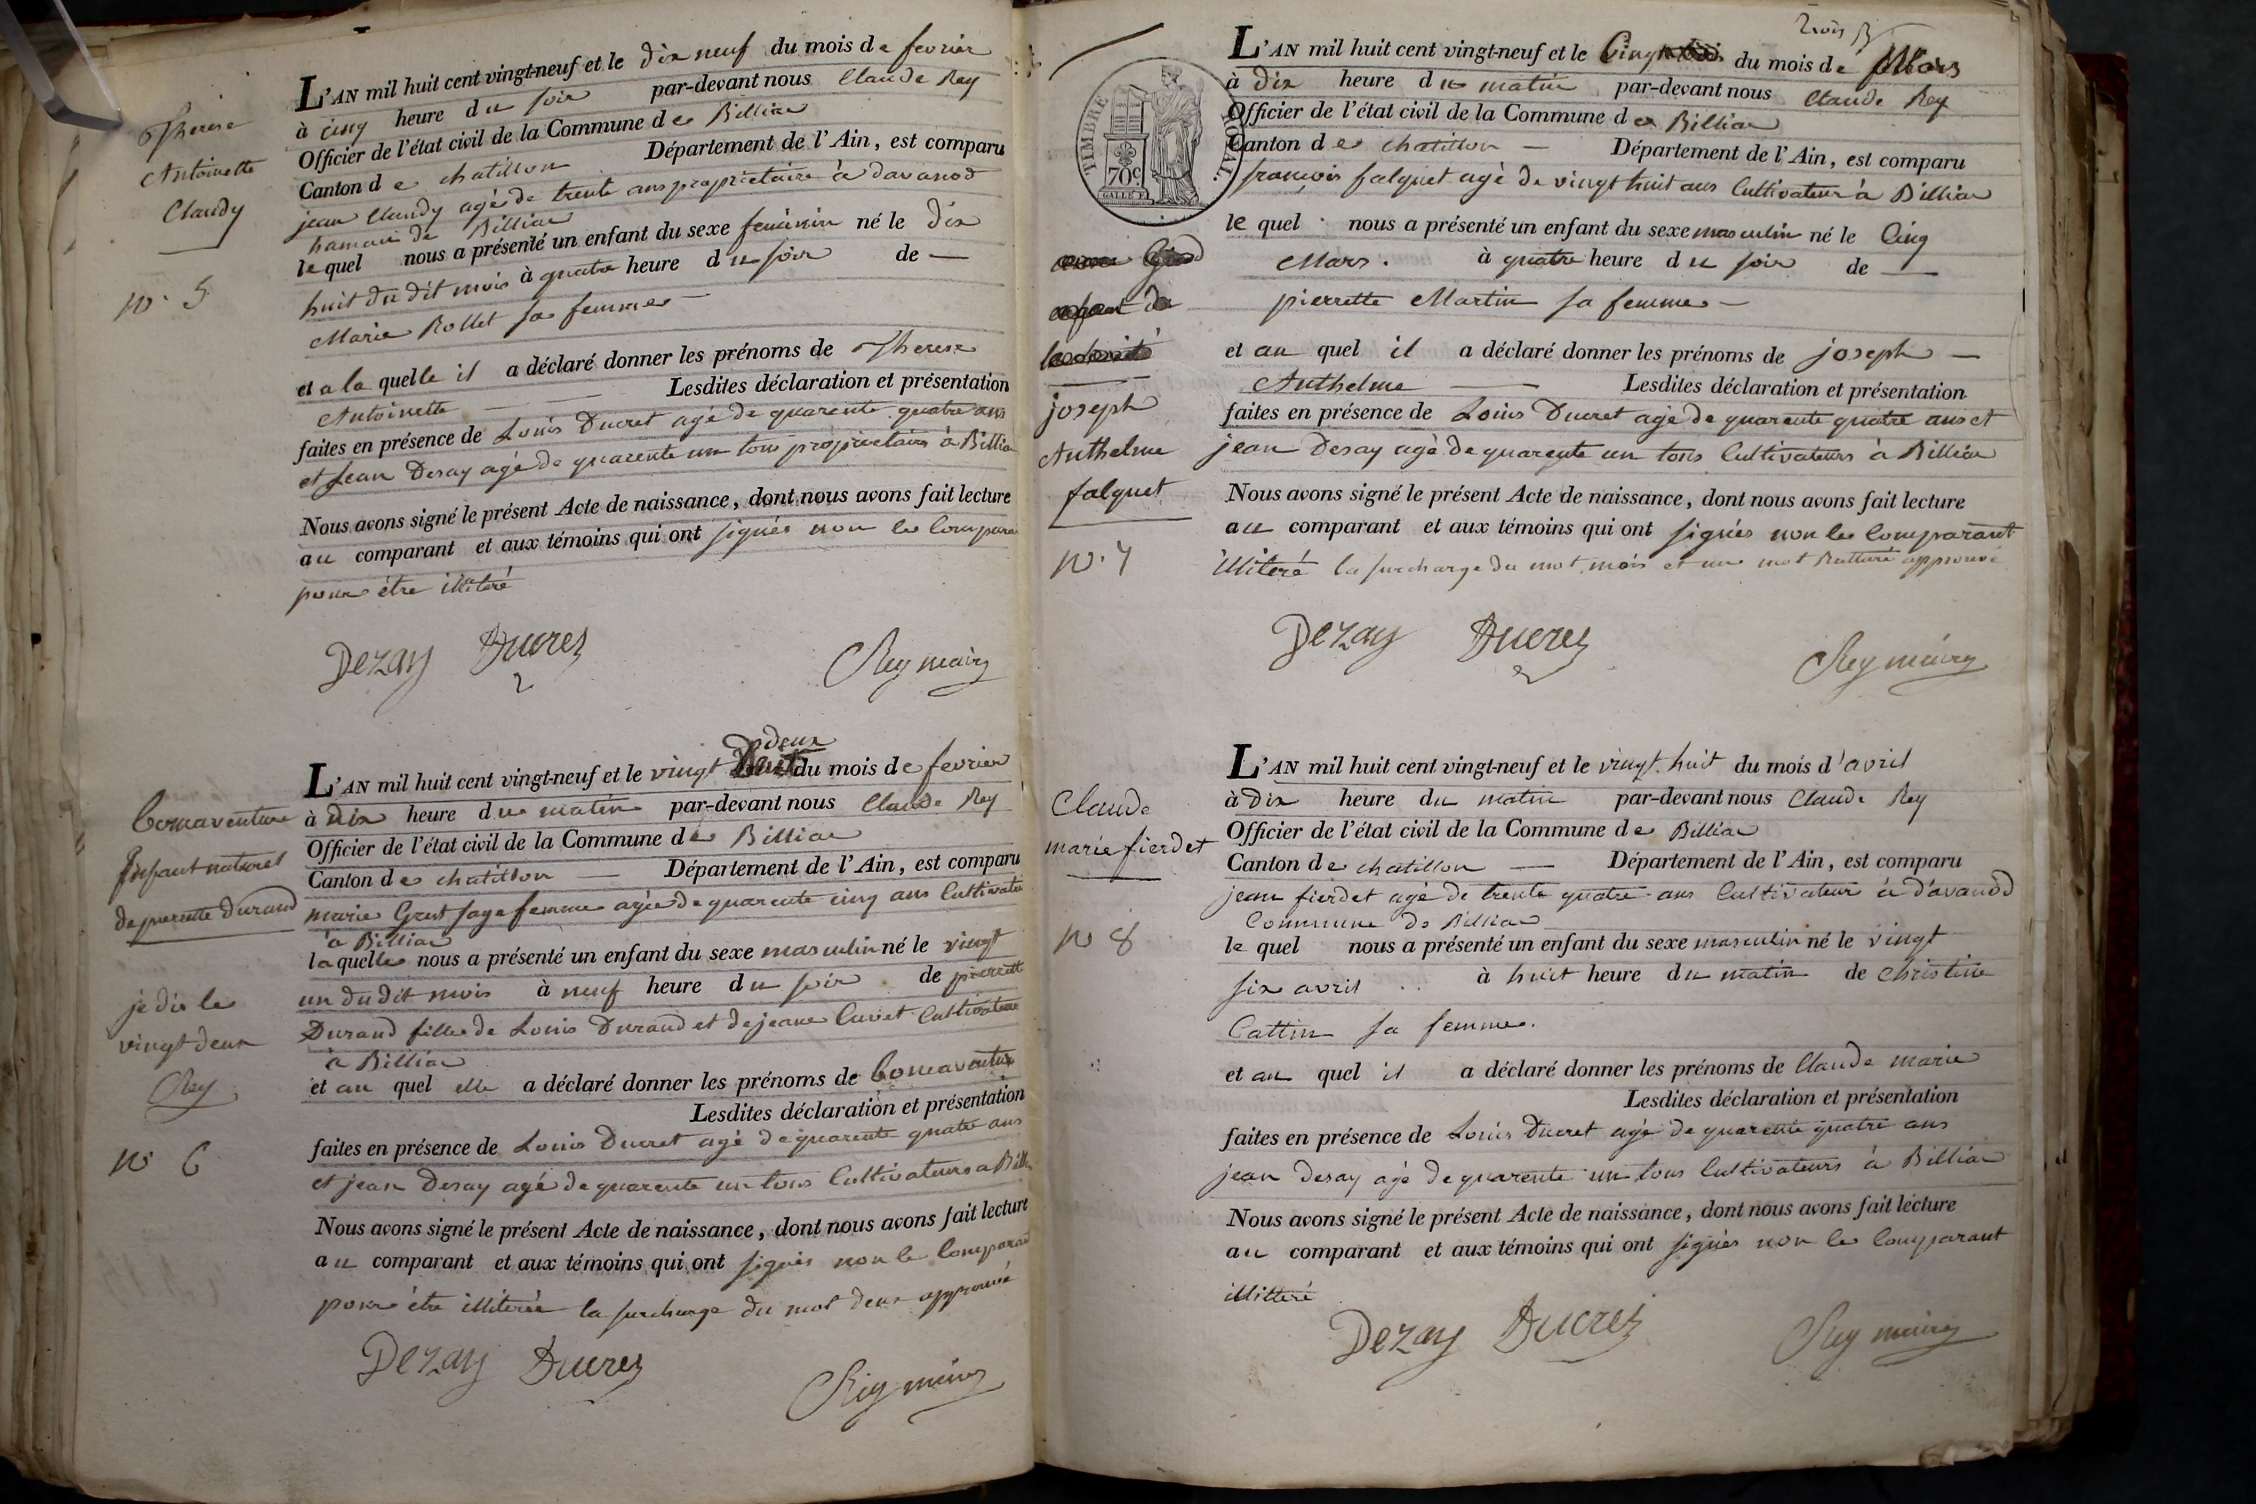 Therese
Antoinette
Claudy
N. 5
L'AN mil huit cent vingt-neuf et le dix neuf du mois de fevrier
à cinq heure du soir par-devant nous Claude Rey
Officier de l'état civil de la Commune de Billiat
Canton de chatillon Département de l'Ain, est comparu
jean Claudy agé de trente ans propriétaire à davanod
hameau de Billiat
lequel nous a présenté un enfant du sexe feminin né le dix
huit du dit mois à quatre heure du soir de —
Marie Rollet sa femme —
et a la quelle il a déclaré donner les prénoms de Therese
Antoinette — Lesdites déclaration et présentation
faites en présence de Louis Ducret agé de quarente quatre ans
et Jean Desay agé de quarente un tous propriétaires à Billia
Nous avons signé le présent Acte de naissance, dont nous avons fait lecture
au comparant et aux témoins qui ont signés non le Compara
pour être illiteré
Dezay Ducres Rey maire
Bonaventure
Enfant naturel
de pierrette Durand
je dis le
vingt deux
Rey
N. 6
deux
L'AN mil huit cent vingt-neuf et le vingt du mois de fevrier
à dix heure du matin par-devant nous Claude Rey
Officier de l'état civil de la Commune de Billiat
Canton de chatillon — Département de l'Ain, est comparu
marie Grut sage femme agée de quarente cinq ans Cultivatr
à Billiat
laquelle nous a présenté un enfant du sexe masculin né le vingt
un du dit mois à neuf heure du soir de pierrette
Durand fille de Louis Durand et de jeane Cuvet Cultivateur
à Billiat
et au quel elle a déclaré donner les prénoms de bonaventure
Lesdites déclaration et présentation
faites en présence de Louis Ducret agé de quarente quatre ans
et jean Desay agé de quarente un tous Cultivateurs a Bill
Nous avons signé le présent Acte de naissance, dont nous avons fait lecture
au comparant et aux témoins qui ont signés non le Comparant
pour être illiterée la surcharge du mot deux approuvé
Dezay Ducres Rey maire
TIMBRE ROYAL.
70c
GALLE F.
joseph
Anthelme
falquet
N. 7
trois R
L'AN mil huit cent vingt-neuf et le Cinq du mois de Mars
à dix heure du matin par-devant nous Claude Rey
Officier de l'état civil de la Commune de Billiat
Canton de chatillon — Département de l'Ain, est comparu
françois falquet agé de vingt huit ans Cultivateur à Billiat
le quel nous a présenté un enfant du sexe masculin né le Cinq
Mars. à quatre heure du soir de —
pierrette Martin sa femme —
et au quel il a déclaré donner les prénoms de joseph —
Anthelme — Lesdites déclaration et présentation
faites en présence de Louis Ducret agé de quarente quatre ans et
jean Desay agé de quarente un tous Cultivateurs à Billiat
Nous avons signé le présent Acte de naissance, dont nous avons fait lecture
au comparant et aux témoins qui ont signés non le Comparant
illiteré la surcharge du mot mois et un mot Ratturé approuvé
Dezay Ducres Rey maire
Claude
marie fierdet
N 8
L'AN mil huit cent vingt-neuf et le vingt huit du mois d'avril
à dix heure du matin par-devant nous Claude Rey
Officier de l'état civil de la Commune de Billiat
Canton de chatillon — Département de l'Ain, est comparu
jean fierdet agé de trente quatre ans Cultivateur à d'avanod
Commune de Billiat
le quel nous a présenté un enfant du sexe masculin né le vingt
six avril à huit heure du matin de christine
Cattin sa femme.
et au quel il a déclaré donner les prénoms de Claude marie
Lesdites déclaration et présentation
faites en présence de Louis Ducret agé de quarente quatre ans
jean Desay agé de quarente un tous Cultivateurs à Billiat
Nous avons signé le présent Acte de naissance, dont nous avons fait lecture
au comparant et aux témoins qui ont signés non le Comparant
illitteré
Dezay Ducres Rey maire